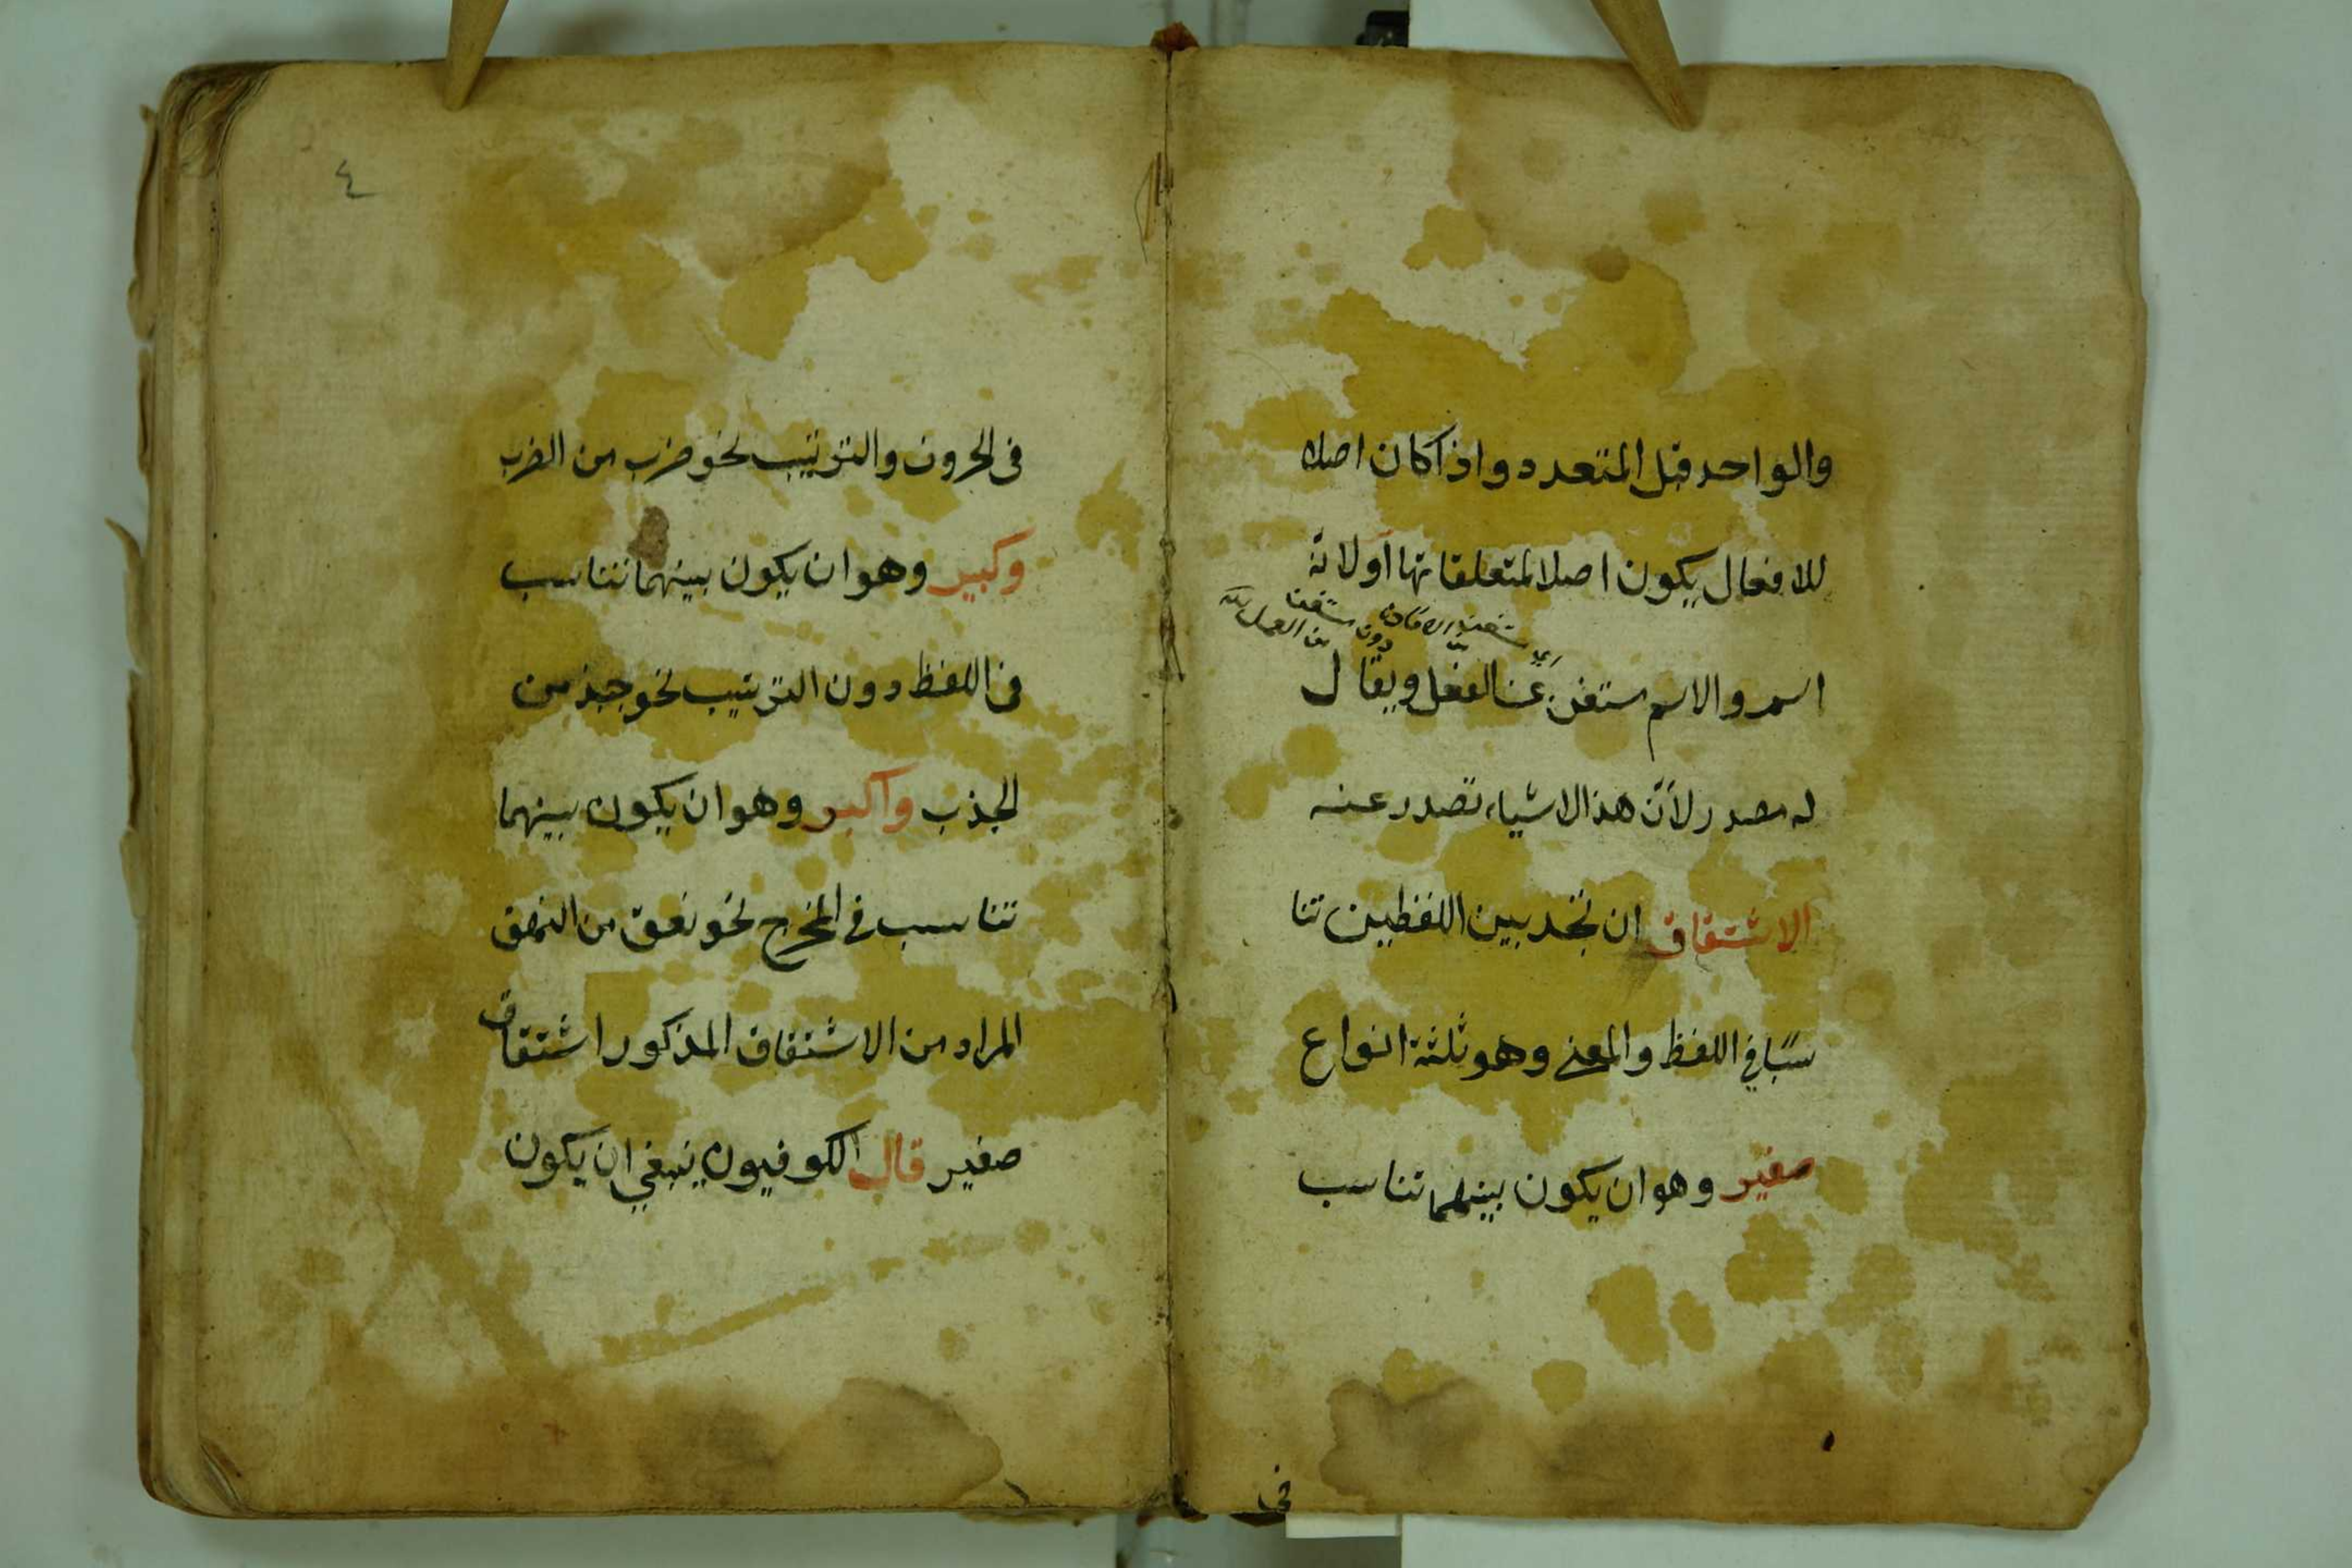 والواحد قبل المتعدد واذا كان اصلا
للافعال يكون اصلا لمتعلقاتها او لانه
اسم والاسم مستغن عن الفعل ويقال
له مصدر لأنّ هذا الاشياء تصدر عنه
الاشتقاق ان تجد بين اللفظين تنا
سبًا في اللفظ والمعنى وهو ثلثة انواع
صغير وهو ان يكون بينهما تناسب
في
٤
فى الحروف والترتيب نحو ضرب من الضرب
وكبير وهو ان يكون بينهما تناسب
فى اللفظ دون الترتيب نحو جبذ من
الجذب واكبر وهو ان يكون بينهما
تناسب فى المخرج نحو نعق من النهق
المراد من الاشتقاق المذكور اشتقاق
صغير قال الكوفيون ينبغي ان يكون